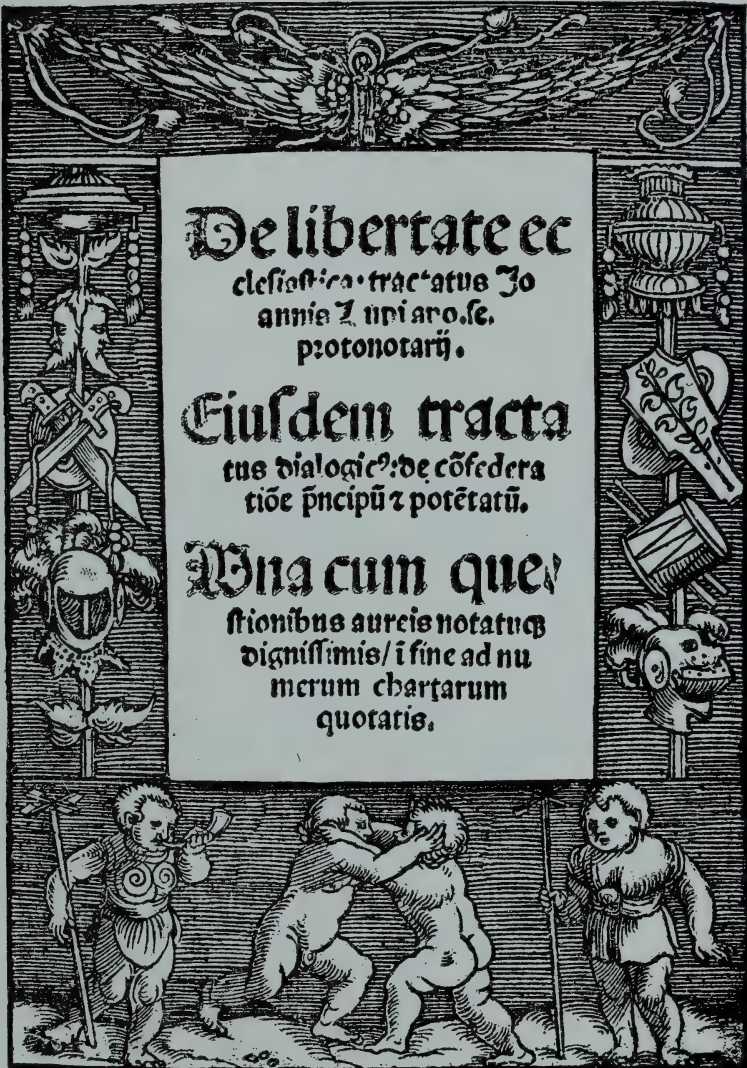 De libertate ec
clesiastica· tractatus Jo
annis Lupi apo.se.
protonotarij.
Eiusdem tracta
tus dialogicꝰ: de cōfedera
tiōe p̄ncipū ⁊ potētatū.
Una cum que⸗
stionibus aureis notatuqꝫ
dignissimis/ ī fine ad nu
merum chartarum
quotatis.